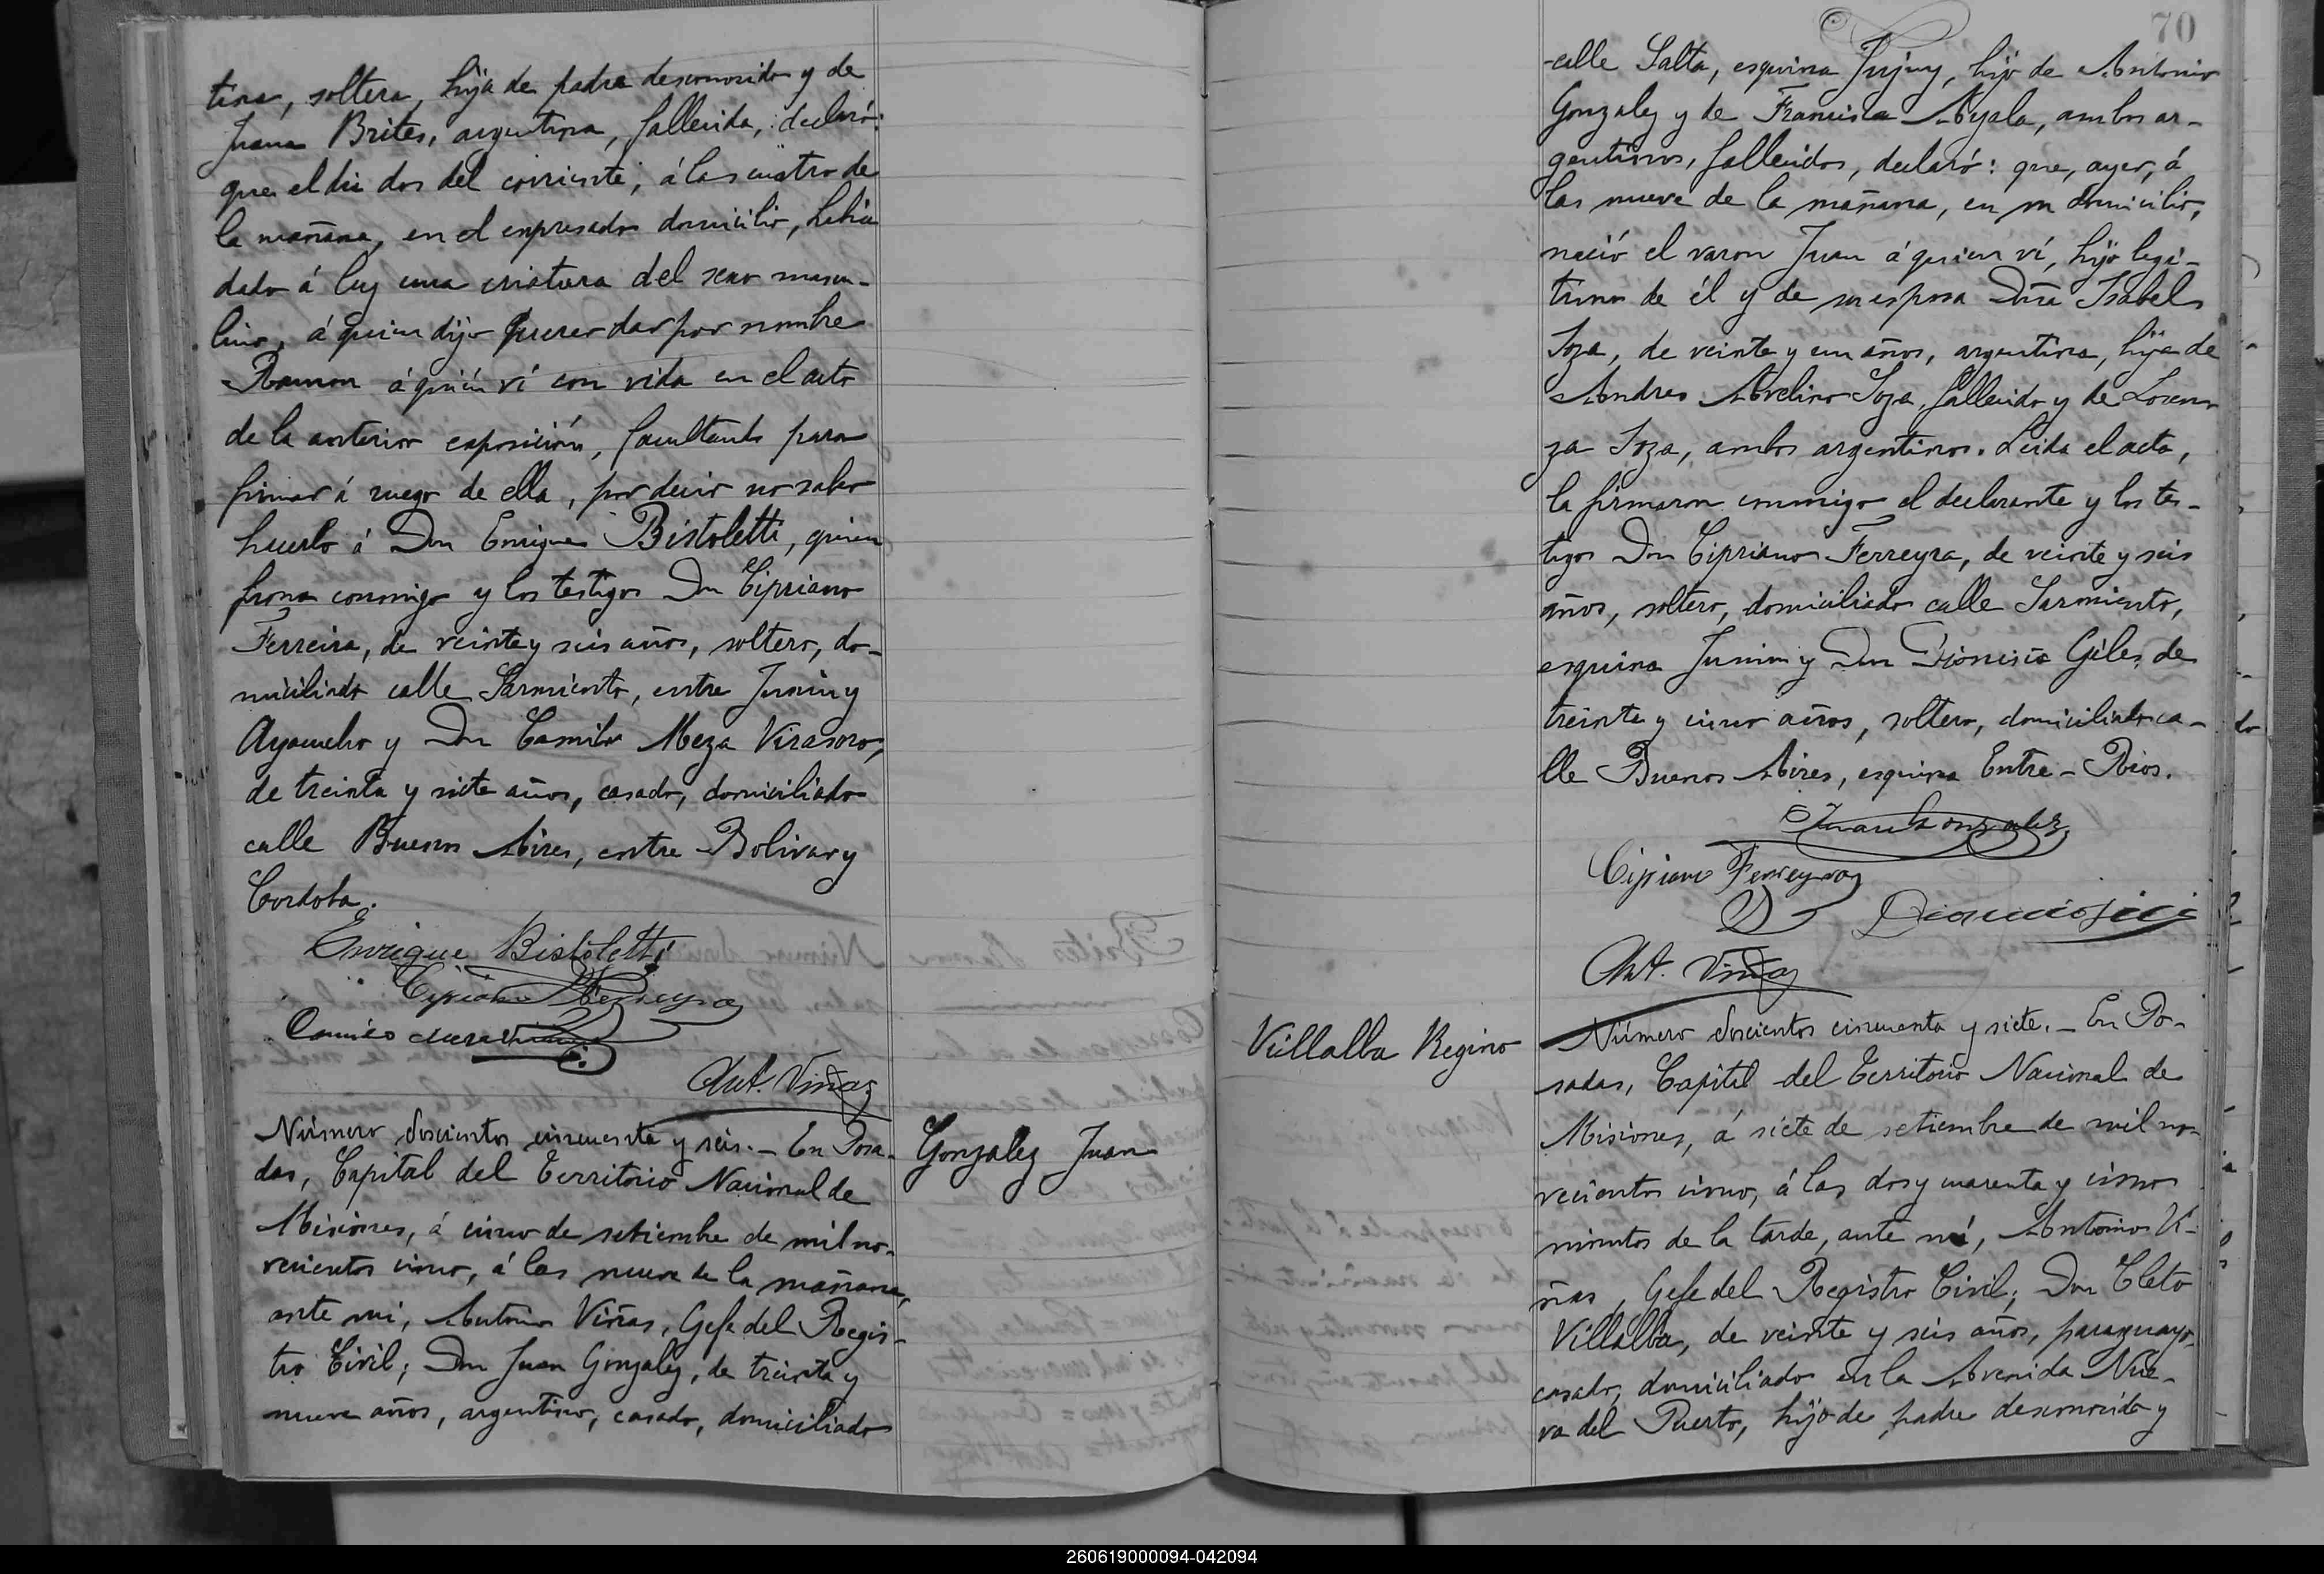 tina, soltera, hija de padre desconocido y de
Juana Brites, argentina, fallecida, declaró:
que el dia dos del corriente, á las cuatro de
la mañana, en el expresado domicilio, había
dado á luz una criatura del sexo mascu-
lino, á quien dijo querer dar por nombre
Ramon á quién ví con vida en el acto
de la anterior exposición, facultando para
firmar á ruego de ella, por decir no saber
hacerlo á Don Enrique Bistoletti, quien
firma conmigo y los testigos Don Cipriano
Ferreira, de veinte y seis años, soltero, do-
miciliado calle Sarmiento, entre Junin y
Ayacucho y Don Camilo Meza Virasoro,
de treinta y siete años, casado, domiciliado
calle Buenos Aires, entre Bolivar y
Cordoba.
Enrique Bistoletti
Cipriano Ferreyra
Camilo Meza Virasoro
Ant. Viñas
Número doscientos cincuenta y seis. - En Posa-
das, Capital del Territorio Nacional de
Misiones, á cinco de setiembre de mil no-
vecientos cinco, á las nueve de la mañana,
ante mi, Antonio Viñas, Gefe del Regis-
tro Civil; Don Juan Gonzalez, de treinta y
nueve años, argentino, casado, domiciliado
Gonzalez Juan
70
calle Salta, esquina Jujuy, hijo de Antonio
Gonzalez y de Francisca Ayala, ambos ar-
gentinos, fallecidos, declaró: que, ayer, á
las nueve de la mañana, en su domicilio,
nació el varon Juan á quien ví, hijo legi-
timo de él y de su esposa Doña Isabel
Soza, de veinte y un años, argentina, hija de
Andres Avelino Soza, fallecido y de Loren-
za Soza, ambos argentinos. Leida el acta,
la firmaron conmigo el declarante y los tes-
tigos Don Cipriano Ferreyra, de veinte y seis
años, soltero, domiciliado calle Sarmiento,
esquina Junin y Don Dionisio Giles, de
treinta y cinco años, soltero, domiciliado ca-
lle Buenos Aires, esquina Entre-Rios.
Juan Gonzalez
Cipriano Ferreyra
Dionicio
Ant. Viñas
Villalba Regino
Número doscientos cincuenta y siete. - En Po-
sadas, Capital del Territorio Nacional de
Misiones, á siete de setiembre de mil no-
vecientos cinco, á las dos y cuarenta y cinco
minutos de la tarde, ante mí, Antonio Vi-
ñas, Gefe del Registro Civil; Don Cleto
Villalba, de veinte y seis años, paraguayo,
casado, domiciliado en la Avenida Nue-
va del Puerto, hijo de padre desconocido y
260619000094-042094